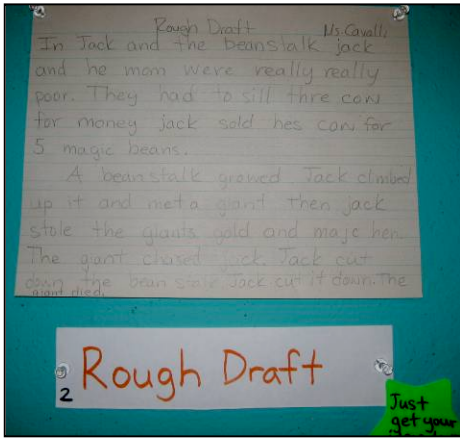 Rough Draft Ms. Cavalli
In Jack and the beanstalk jack
and he mom were really really
poor. They had to sill thre cow
for money jack sold hes cow for
5 magic beans.
A beanstalk growed Jack climbed
up it and met a giant then jack
stole the giants gold and majc hen.
The giant chased jack. Jack cut
down the bean stalk Jack cut it down. The
giant died.
2 Rough Draft
Just
get your